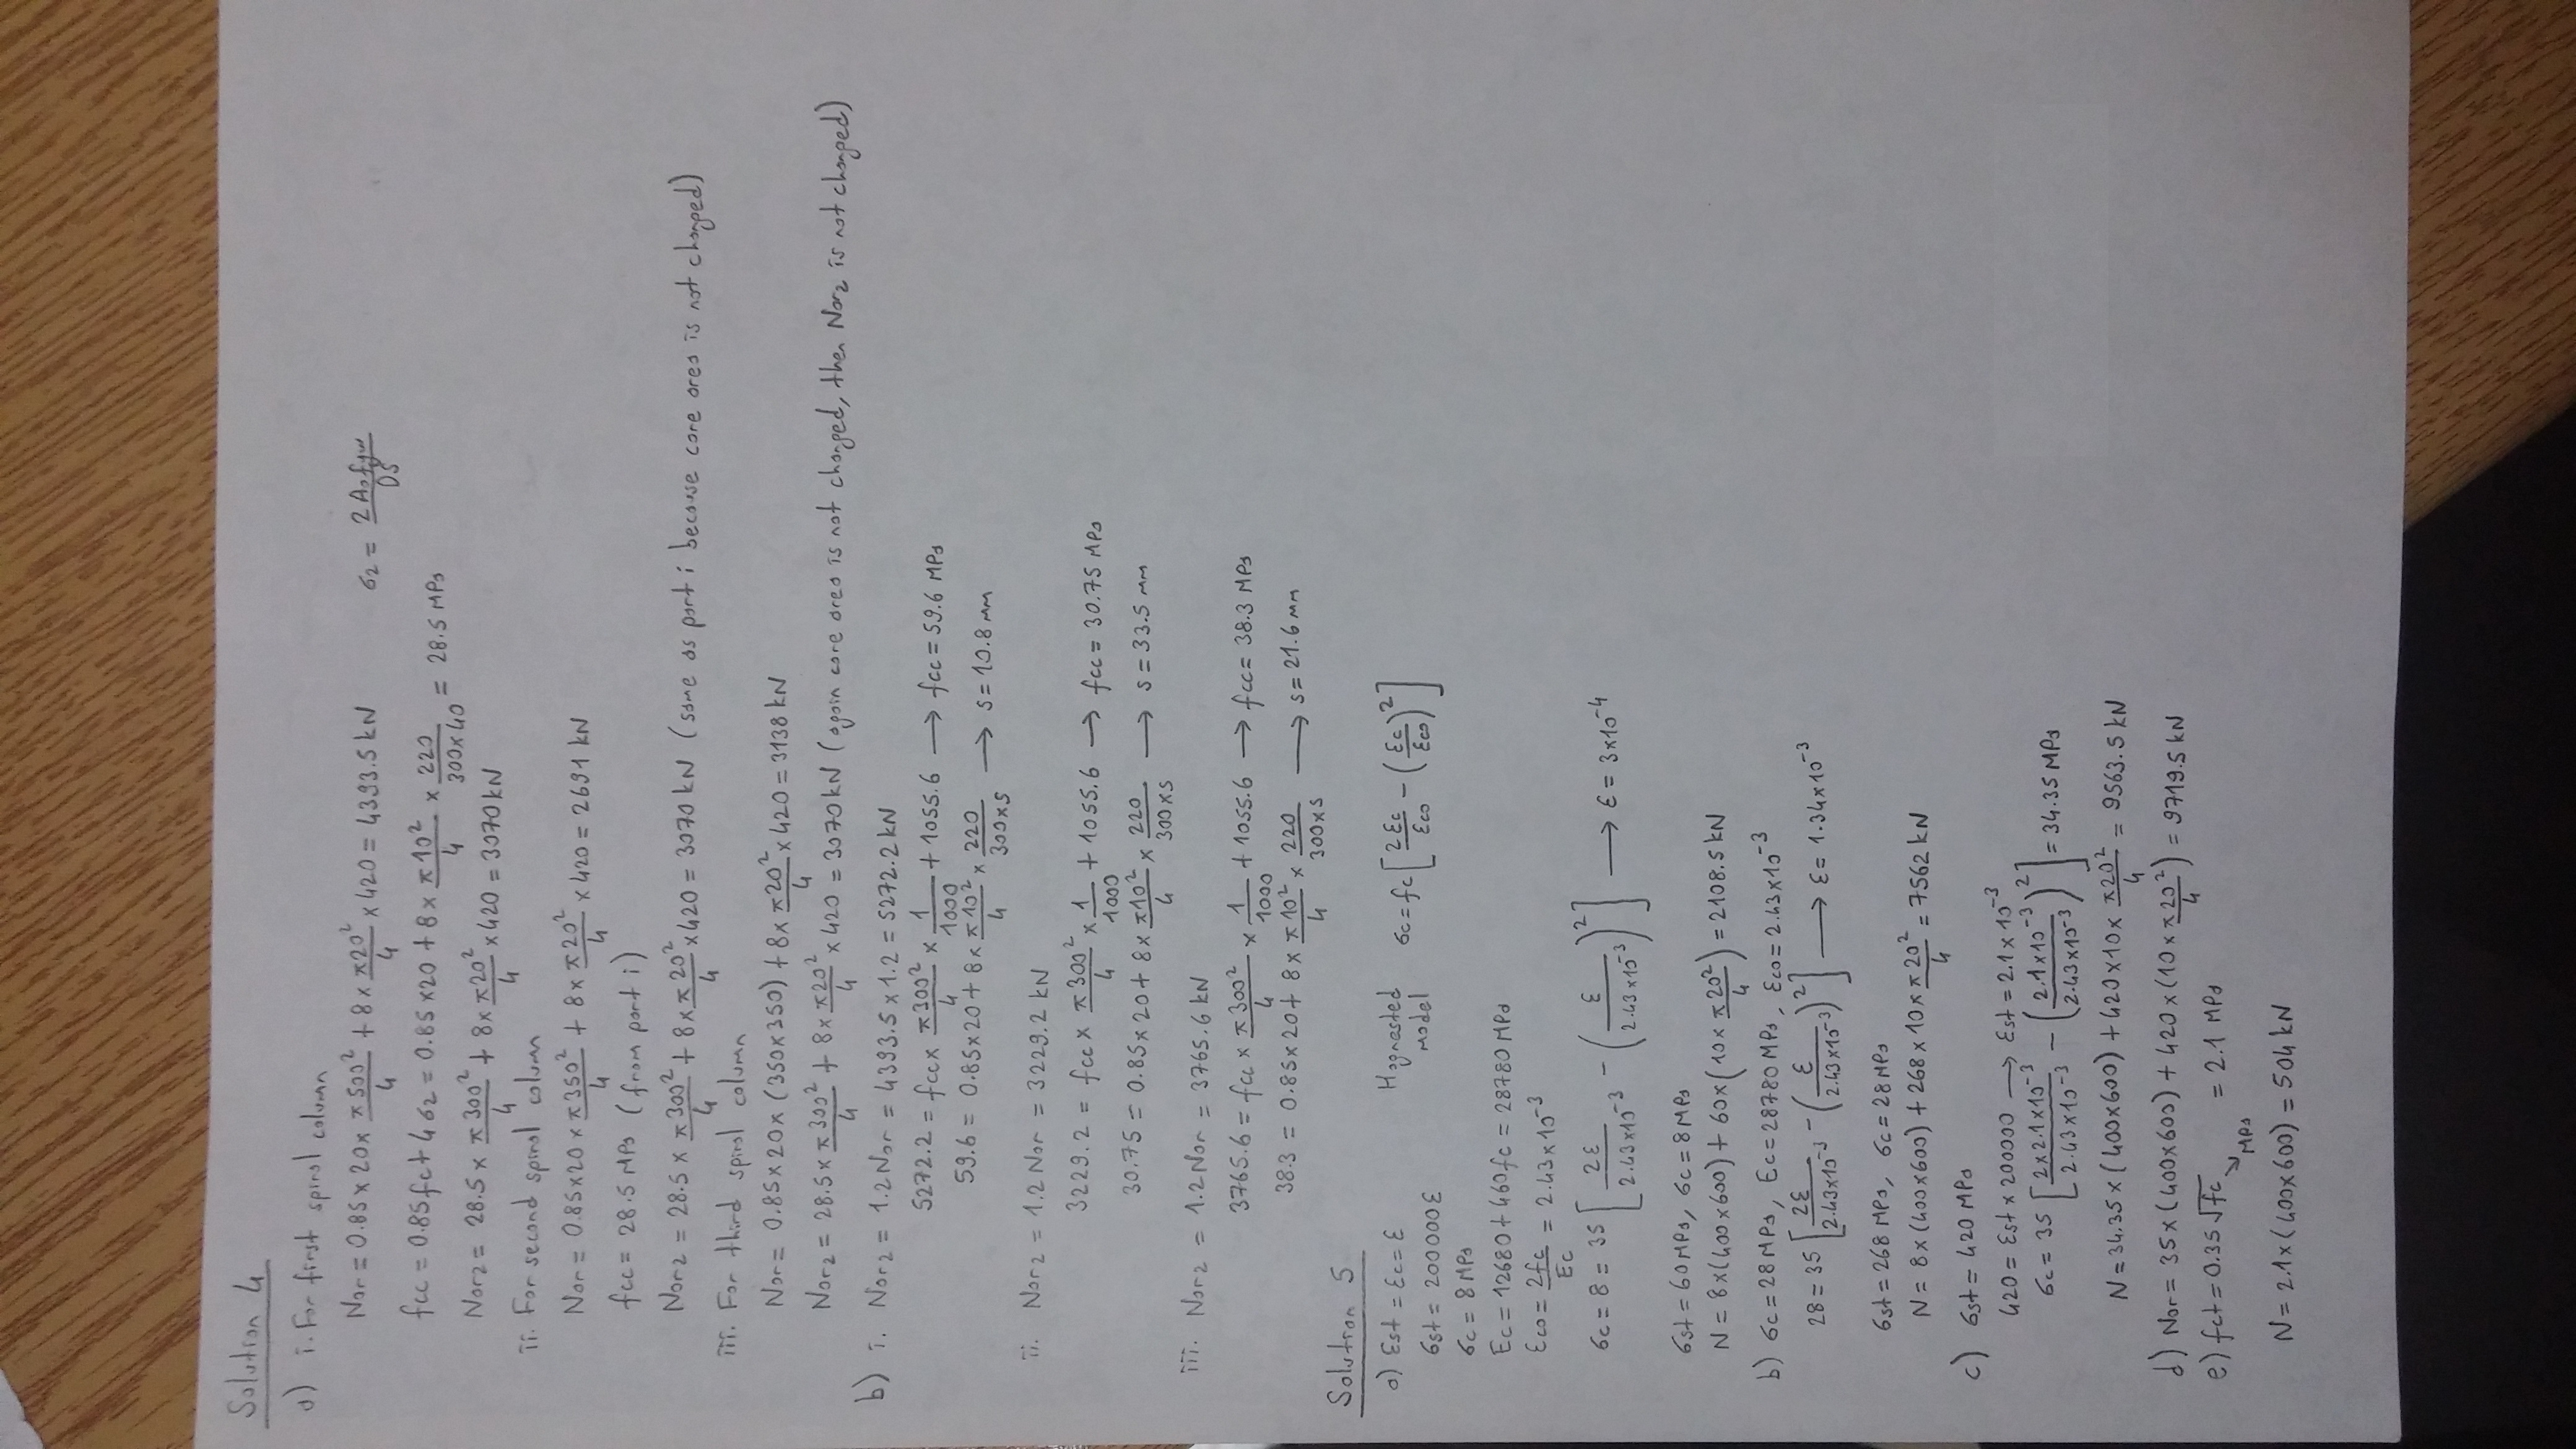 Solution 4
a) i. For first spiral column
Nor = 0.85 x 20 x π500²/4 + 8 x π20²/4 x 420 = 4393.5 kN
σ2 = 2Aofyw/DS
fcc = 0.85fc + 4σ2 = 0.85 x 20 + 8 x π10²/4 x 220/300x40 = 28.5 MPa
Nor2 = 28.5 x π300²/4 + 8 x π20²/4 x 420 = 3070 kN
ii. For second spiral column
Nor = 0.85x20 x π350²/4 + 8 x π20²/4 x 420 = 2691 kN
fcc = 28.5 MPa (from part i)
Nor2 = 28.5 x π300²/4 + 8 x π20²/4 x 420 = 3070 kN (same as part i because core area is not changed)
iii. For third spiral column
Nor = 0.85x20x (350x350) + 8x π20²/4 x 420 = 3138 kN
Nor2 = 28.5 x π300²/4 + 8 x π20²/4 x 420 = 3070 kN (again core area is not changed, then Nor2 is not changed)
b) i. Nor2 = 1.2 Nor = 4393.5 x 1.2 = 5272.2 kN
5272.2 = fcc x π300²/4 x 1/1000 + 1055.6 → fcc = 59.6 MPa
59.6 = 0.85x20 + 8x π10²/4 x 220/300xs → s = 10.8 mm
ii. Nor2 = 1.2 Nor = 3229.2 kN
3229.2 = fcc x π300²/4 x 1/1000 + 1055.6 → fcc = 30.75 MPa
30.75 = 0.85x20 + 8x π10²/4 x 220/300xs → s = 33.5 mm
iii. Nor2 = 1.2 Nor = 3765.6 kN
3765.6 = fcc x π300²/4 x 1/1000 + 1055.6 → fcc = 38.3 MPa
38.3 = 0.85x20 + 8 x π10²/4 x 220/300xs → s = 21.6 mm
Solution 5
a) Est = Ec = E
Hognested model
σc = fc [2εc/εco - (εc/εco)²]
σst = 200000ε
σc = 8 MPa
Ec = 12680 + 460fc = 28780 MPa
εco = 2fc/Ec = 2.43x10⁻³
σc = 8 = 35 [2ε/2.43x10⁻³ - (ε/2.43x10⁻³)²] → ε = 3x10⁻⁴
σst = 60 MPa, σc = 8 MPa
N = 8x(400x600) + 60x(10x π20²/4) = 2108.5 kN
b) σc = 28 MPa, Ec = 28780 MPa, εco = 2.43x10⁻³
28 = 35 [2ε/2.43x10⁻³ - (ε/2.43x10⁻³)²] → ε = 1.34x10⁻³
σst = 268 MPa, σc = 28 MPa
N = 8x (400x600) + 268 x 10 x π20²/4 = 7562 kN
c) σst = 420 MPa
420 = εst x 200000 → εst = 2.1 x 10⁻³
σc = 35 [2x2.1x10⁻³/2.43x10⁻³ - (2.1x10⁻³/2.43x10⁻³)²] = 34.35 MPa
N = 34.35 x (400x600) + 420x10x π20²/4 = 9563.5 kN
d) Nor = 35x(400x600) + 420x(10x π20²/4) = 9719.5 kN
e) fct = 0.35 √fc = 2.1 MPa
↘ MPa
N = 2.1x(400x600) = 504 kN